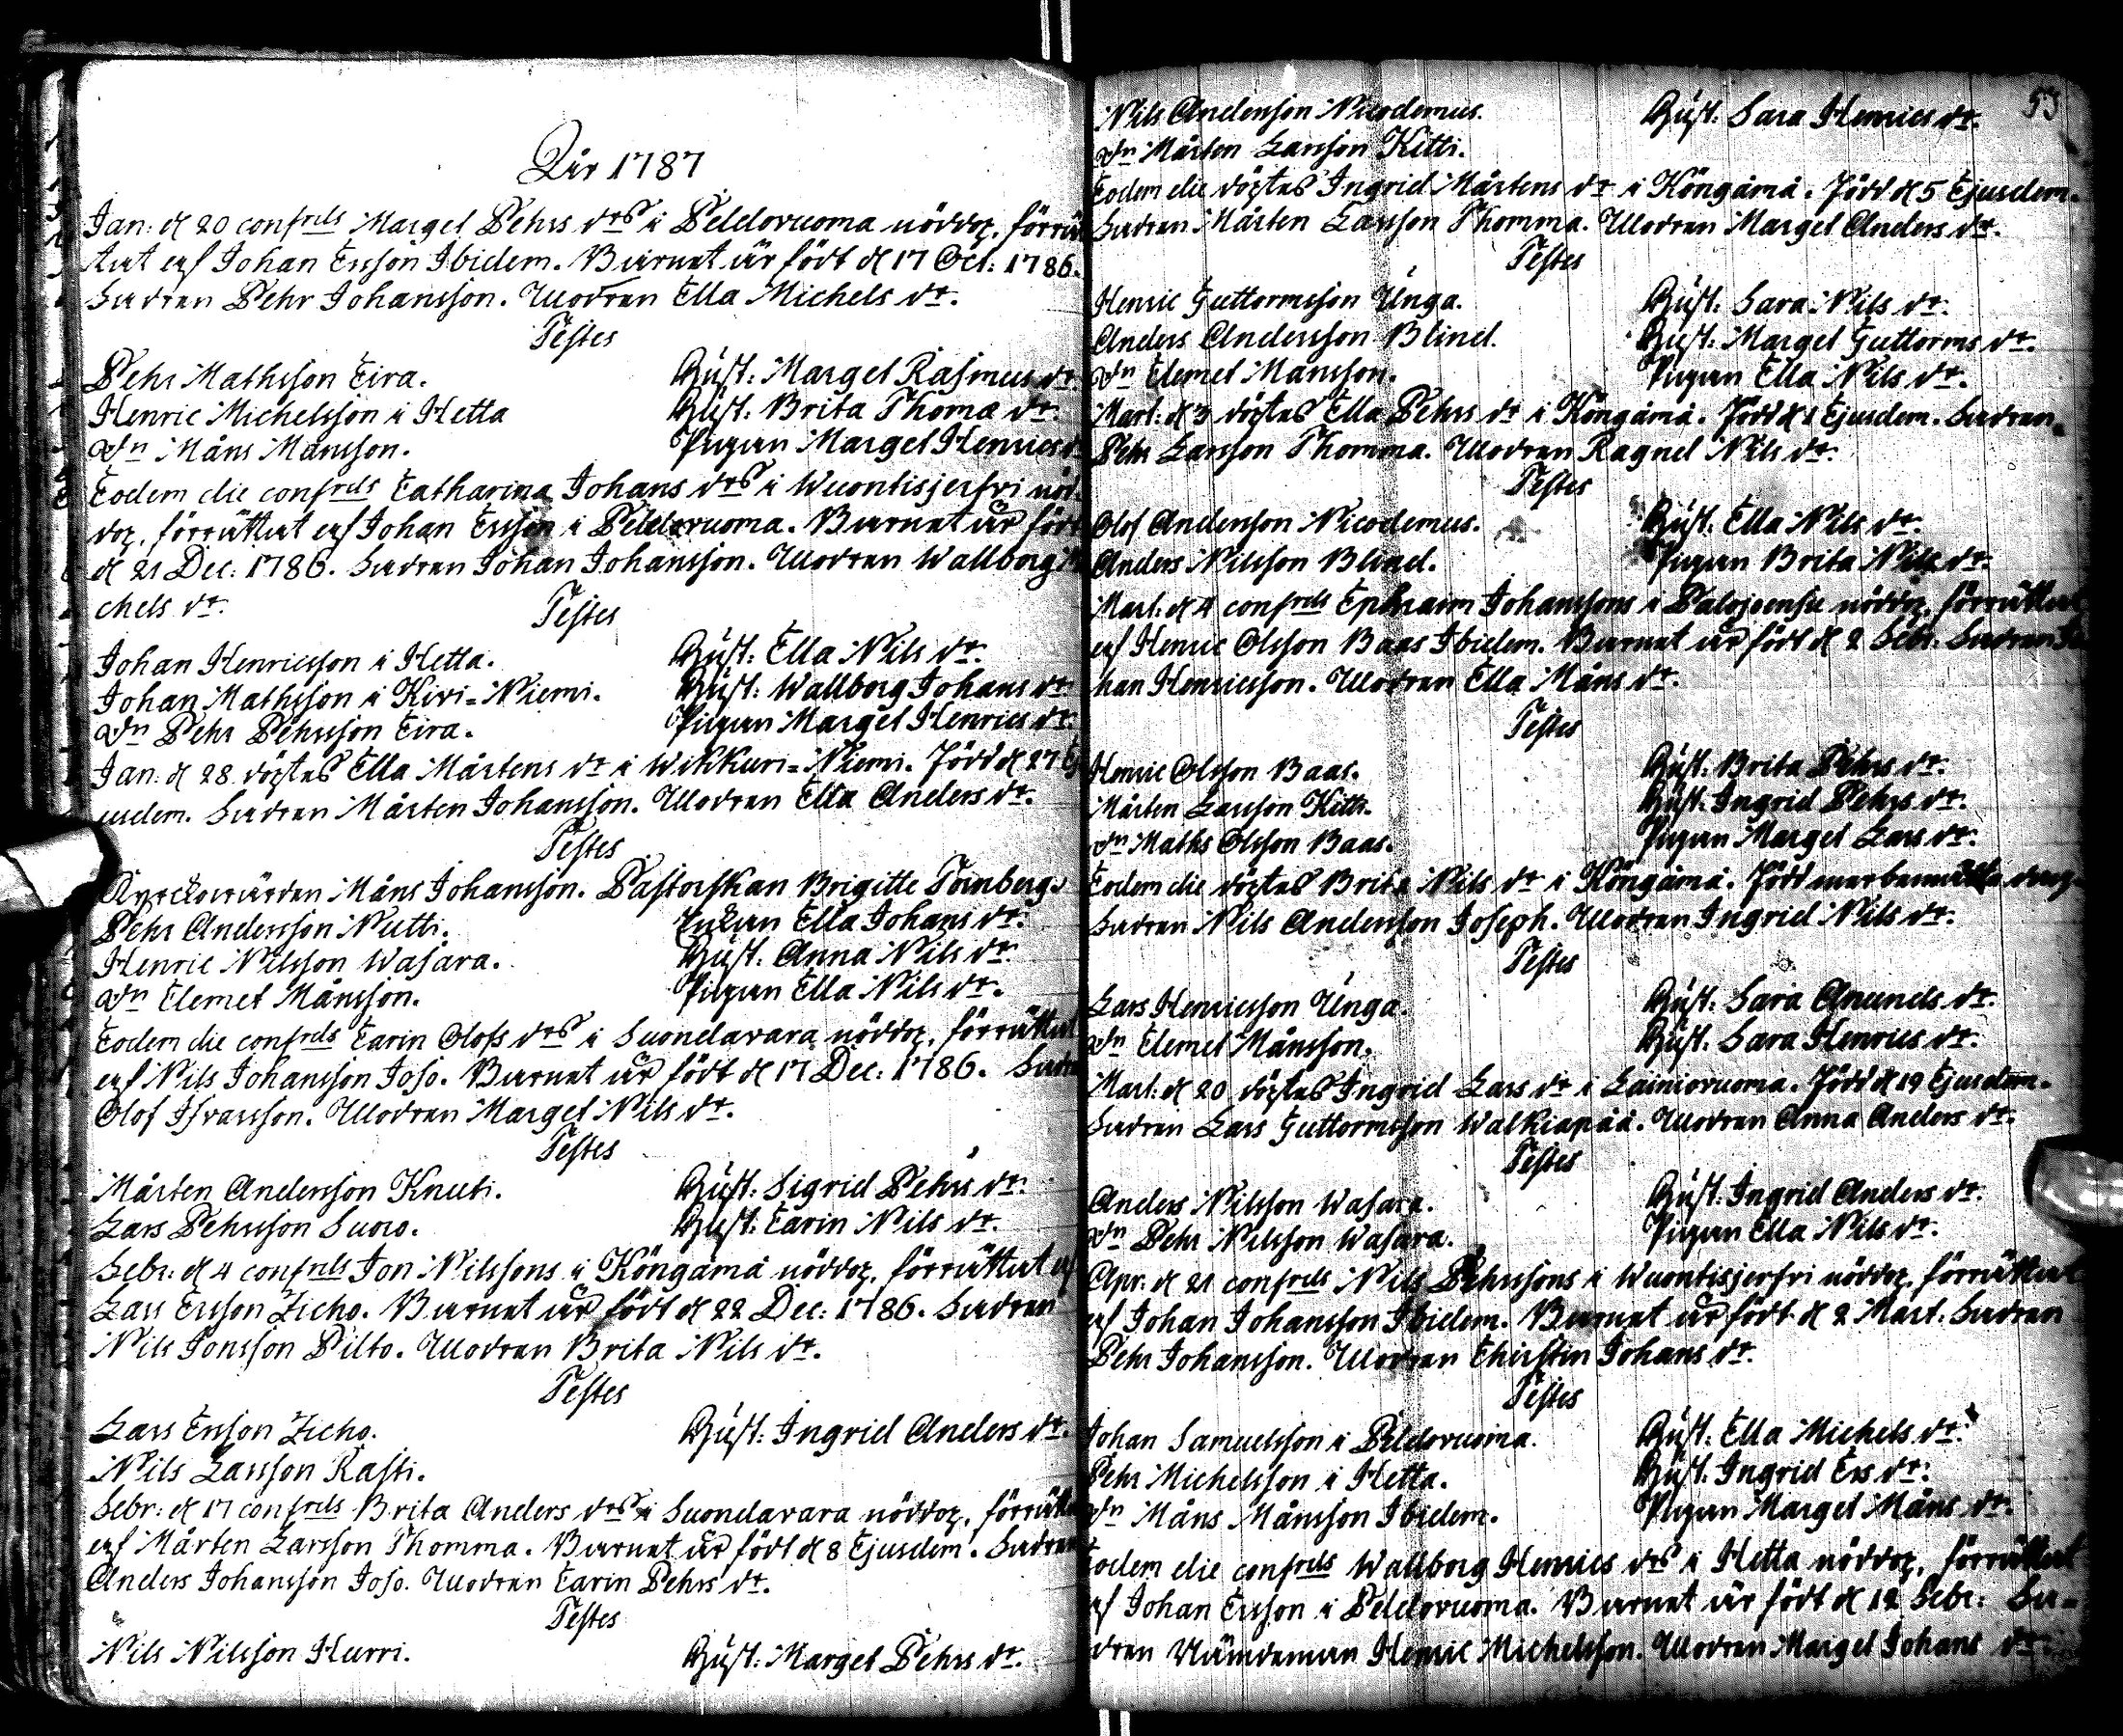 Åhr 1787
Jan: d 20 confrds Margel Pehrs drs i Peldovuoma nöddop. förrät
tat af Johan Ersson Ibidem. Barnet är födt d 17 Oct: 1786.
Fadren Pehr Johansson. Modren Ella Michels dr.
Testes
Pehr Mathsson Eira. Hust: Margel Rasmus dr
Henric Michelsson i Hetta Hust: Brita Thomæ dr.
dn Måns Månsson. Pigan Margel Henrics
Eodem die confrds Catharina Johans drs i Wuontisjerfvi nöd
dop. förrättat af Johan Ersson i Peldovuoma. Barnet är födt
d 21 Dec: 1786. Fadren Johan Johansson. Modren Wallborg Mi
chels dr.
Testes
Johan Henricsson i Hetta. Hust: Ella Nils dr.
Johan Mathsson i Kivi=Niemi. Hust: Wallborg Johans dr
dn Pehr Pehrsson Eira. Pigan Margel Henrics dr.
Jan: d 28 döptes Ella Mårtens dr i Wikkuri=Niemi. Född d 27 Ej
usdem. Fadren Mårten Johansson. Modren Ella Anders dr.
Testes
Kyrckowärden Måns Johansson. Pastorskan Brigitte Tornberg.
Pehr Andersson Nutti. Enkan Ella Johans dr.
Henric Nilsson Wasara. Hust. Anna Nils dr.
dn Clemet Månsson. Pigan Ella Nils dr.
Eodem die confrds Carin Olofs drs i Suondavara nöddop. förrättat
af Nils Johansson Joso. Barnet är födt d 17 Dec: 1786. Fadr
Olof Ifvarsson. Modren Margel Nils dr.
Testes
Mårten Andersson Knuti. Hust: Sigrid Pehrs dr.
Lars Pehrsson Suoro. Hust: Carin Nils dr.
Febr: d 4 confrds Jon Nilssons i Köngämä nöddop. förrättat af
Lars Ersson Zicho. Barnet är födt d 22 Dec: 1786. Fadren
Nils Jonsson Pilto. Modren Brita Nils dr.
Testes
Lars Ersson Zicho. Hust: Ingrid Anders dr.
Nils Larsson Rasti.
Febr: d 17 confrds Brita Anders drs i Suondavara nöddop. förrätta
af Mårten Larsson Thomma. Barnet är födt d 8 Ejusdem. Fadren
Anders Johansson Joso. Modren Carin Pehrs dr.
Testes
Nils Nilsson Hurri. Hust: Margel Pehrs dr.
53
Nils Andersson Nicodemus. Hust: Sara Henrics dr.
dn Mårten Larsson Kitti.
Eodem die döptes Ingrid Mårtens dr i Köngämä. Född d 5 Ejusdem.
Fadren Mårten Larsson Thomma. Modren Margel Anders dr.
Testes
Henric Guttormsson Unga. Hust: Sara Nils dr.
Anders Andersson Blind. Hust: Margel Guttorms dr.
dn Clemet Månsson. Pigan Ella Nils dr.
Mart: d 3 döptes Ella Pehrs dr i Köngämä. Född d 1 Ejusdem. Fadren
Pehr Larsson Thomma. Modren Ragnel Nils dr.
Testes
Olof Andersson Nicodemus. Hust: Ella Nils dr.
Anders Nilsson Blind. Pigan Brita Nils dr.
Mart: d 4 confrds Ephraim Johanssons i Palojoensu nöddop. förrättat
af Henric Olsson Baas Ibidem. Barnet är födt d 2 Febr: Fadren Jo
han Henricsson. Modren Ella Måns dr.
Testes
Henric Olsson Baas. Hust: Brita Pehrs dr.
Mårten Larsson Kitti. Hust: Ingrid Pehrs dr.
dn Maths Olsson Baas. Pigan Margel Lars dr.
Eodem die döptes Brita Nils dr i Köngämä. Född
Fadren Nils Andersson Joseph. Modren Ingrid Nils dr.
Testes
Lars Henricsson Unga. Hust: Sara Amunds dr.
dn Clemet Månsson. Hust: Sara Henrics dr.
Mart: d 20 döptes Ingrid Lars dr i Lainiovuoma. Född d 19 Ejusdem.
Fadren Lars Guttormsson Walkiapää. Modren Anna Anders dr.
Testes
Anders Nilsson Wasara. Hust: Ingrid Anders dr.
dn Pehr Nilsson Wasara. Pigan Ella Nils dr.
Apr: d 21 confrds Nils Pehrssons i Wuontisjerfvi nöddop. förrättat
af Johan Johansson Ibidem. Barnet är födt d 2 Mart. Fadren
Pehr Johansson. Modren Christin Johans dr.
Testes
Johan Samuelsson i Peldovuoma. Hust: Ella Michels dr.
Pehr Michelsson i Hetta. Hust: Ingrid Ers dr.
dn Måns Månsson Ibidem. Pigan Margel Måns dr.
Eodem die confrds Wallborg Henrics drs i Hetta nöddop. förrättat
af Johan Ersson i Peldovuoma. Barnet är födt d 12 Febr: Fa=
dren Nämdeman Henric Michelsson. Modren Margel Johans dr